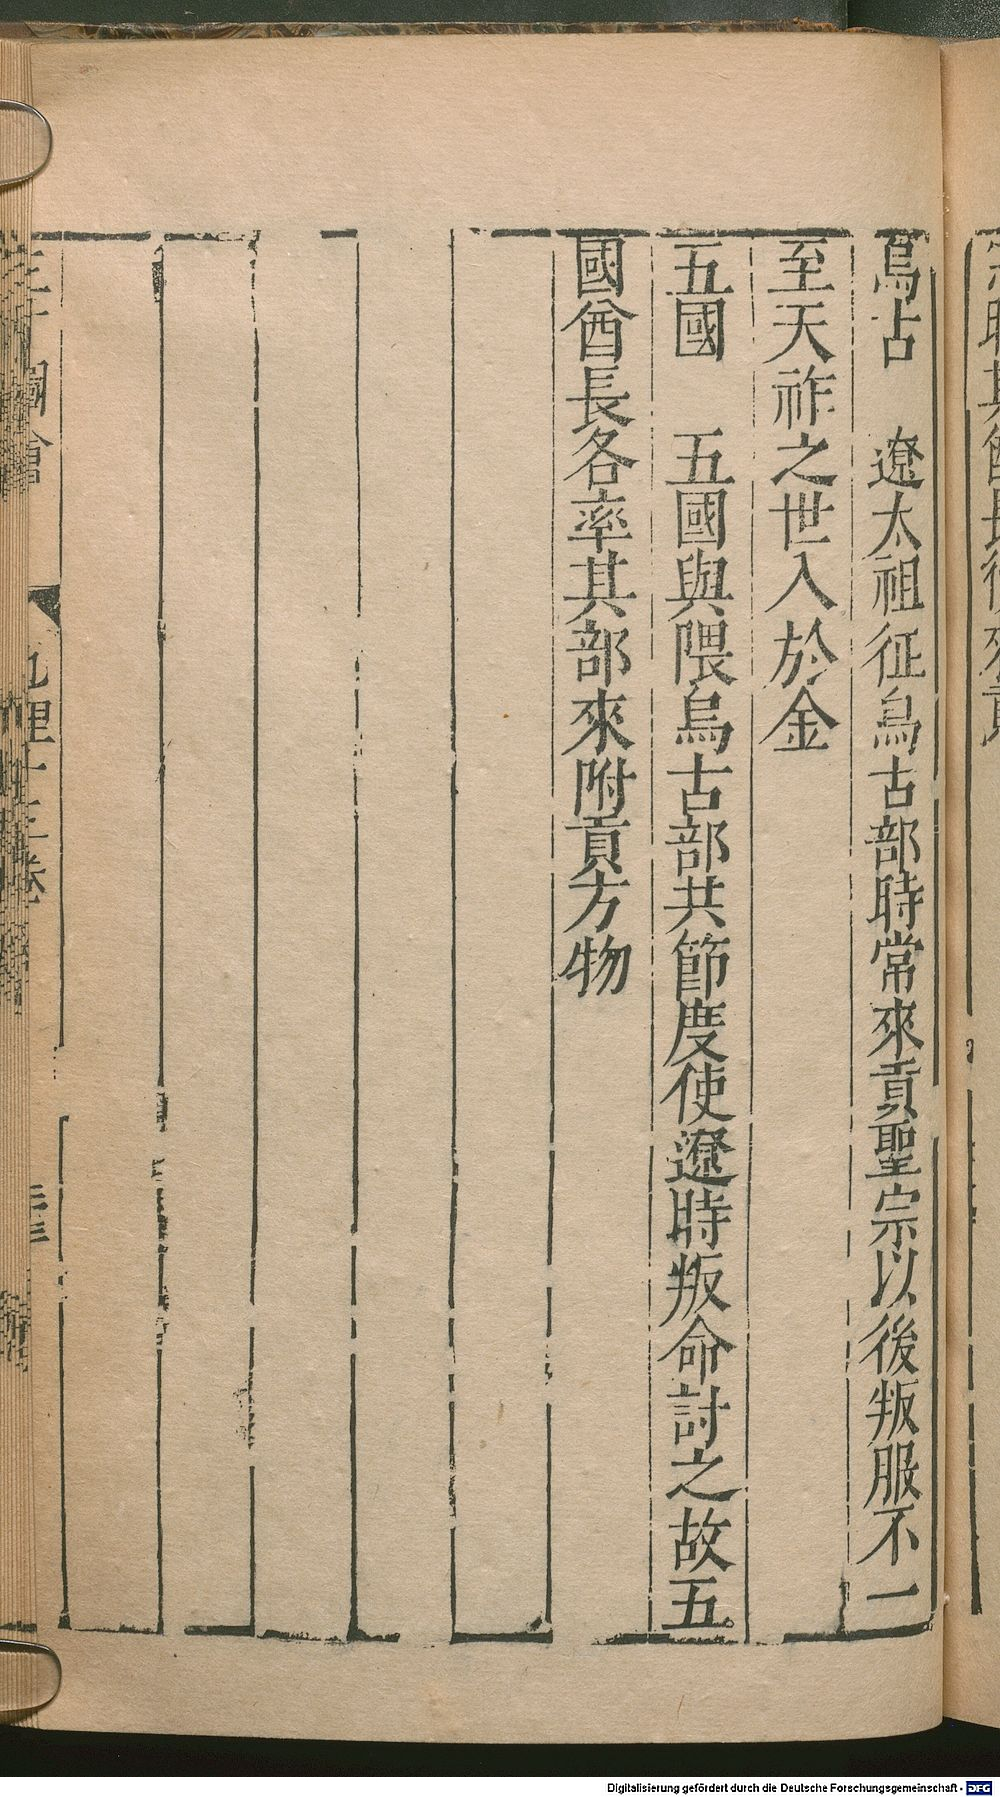 烏古　遼太祖征烏古部時常來貢聖宗以後叛服不一
至天祚之世入於金
五國　五國與隈烏古部共節度使遼時叛命討之故五
國酋長各率其部來附貢方物
地理十三卷
Digitalisierung gefördert durch die Deutsche Forschungsgemeinschaft - DFG